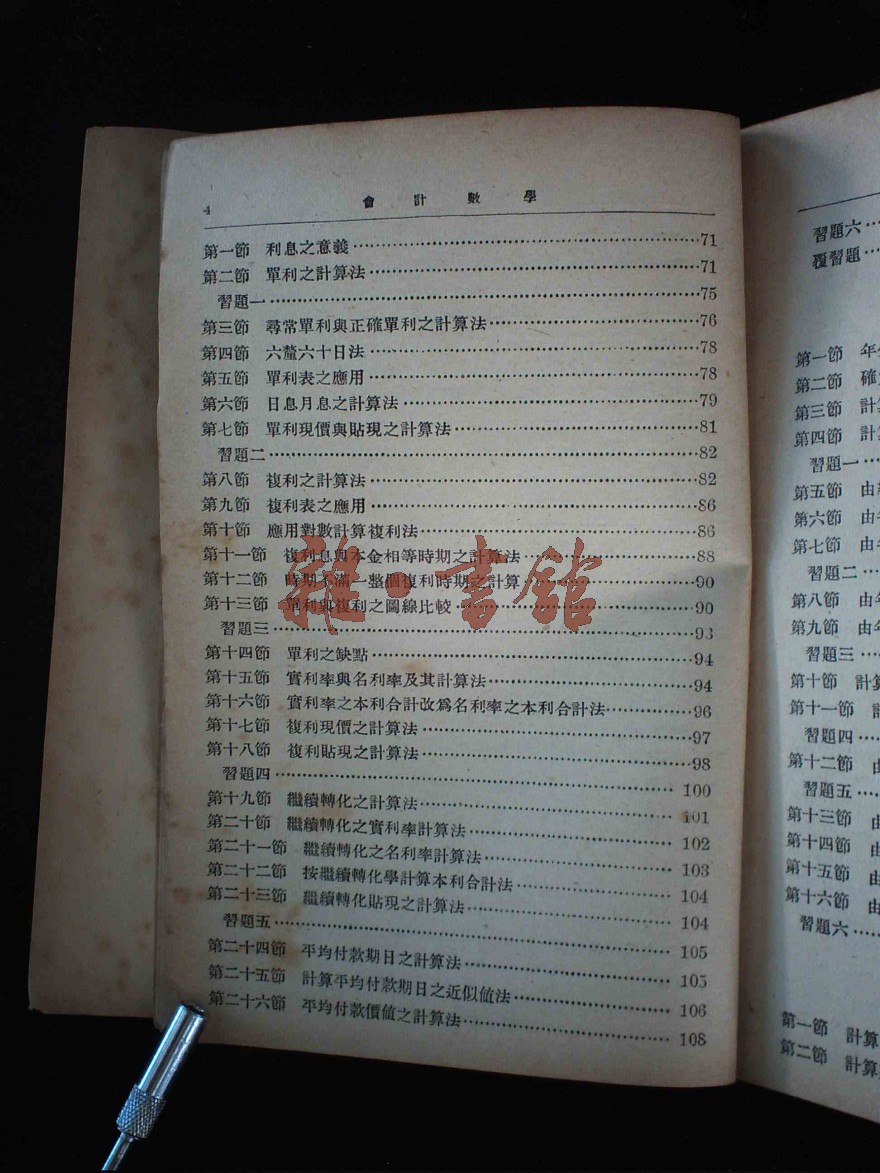 4
會計數學
第一節 利息之意義……71
第二節 單利之計算法……71
習題一……75
第三節 尋常單利與正確單利之計算法……76
第四節 六釐六十日法……78
第五節 單利表之應用……78
第六節 日息月息之計算法……79
第七節 單利現價與貼現之計算法……81
習題二……82
第八節 複利之計算法……82
第九節 複利表之應用……86
第十節 應用對數計算複利法……86
第十一節 複利息與本金相等時期之計算法……88
第十二節 時期不滿一整個複利時期之計算……90
第十三節 單利與複利之圖線比較……90
習題三……93
第十四節 單利之缺點……94
第十五節 實利率與名利率及其計算法……94
第十六節 實利率之本利合計改爲名利率之本利合計法……96
第十七節 複利現價之計算法……97
第十八節 複利貼現之計算法……98
習題四……100
第十九節 繼續轉化之計算法……101
第二十節 繼續轉化之實利率計算法……102
第二十一節 繼續轉化之名利率計算法……103
第二十二節 按繼續轉化學計算本利合計法……104
第二十三節 繼續轉化貼現之計算法……104
習題五……105
第二十四節 平均付款期日之計算法……105
第二十五節 計算平均付款期日之近似值法……106
第二十六節 平均付款價値之計算法……108
雜·書館
習題六……
覆習題……
第一節 年
第二節 確
第三節 計
第四節 計
習題一……
第五節 由
第六節 由
第七節 由
習題二……
第八節 由
第九節 由
習題三……
第十節 計算
第十一節
習題四……
第十二節 由
習題五……
第十三節 由
第十四節 由
第十五節 由
第十六節 由
習題六……
第一節 計算
第二節 計算